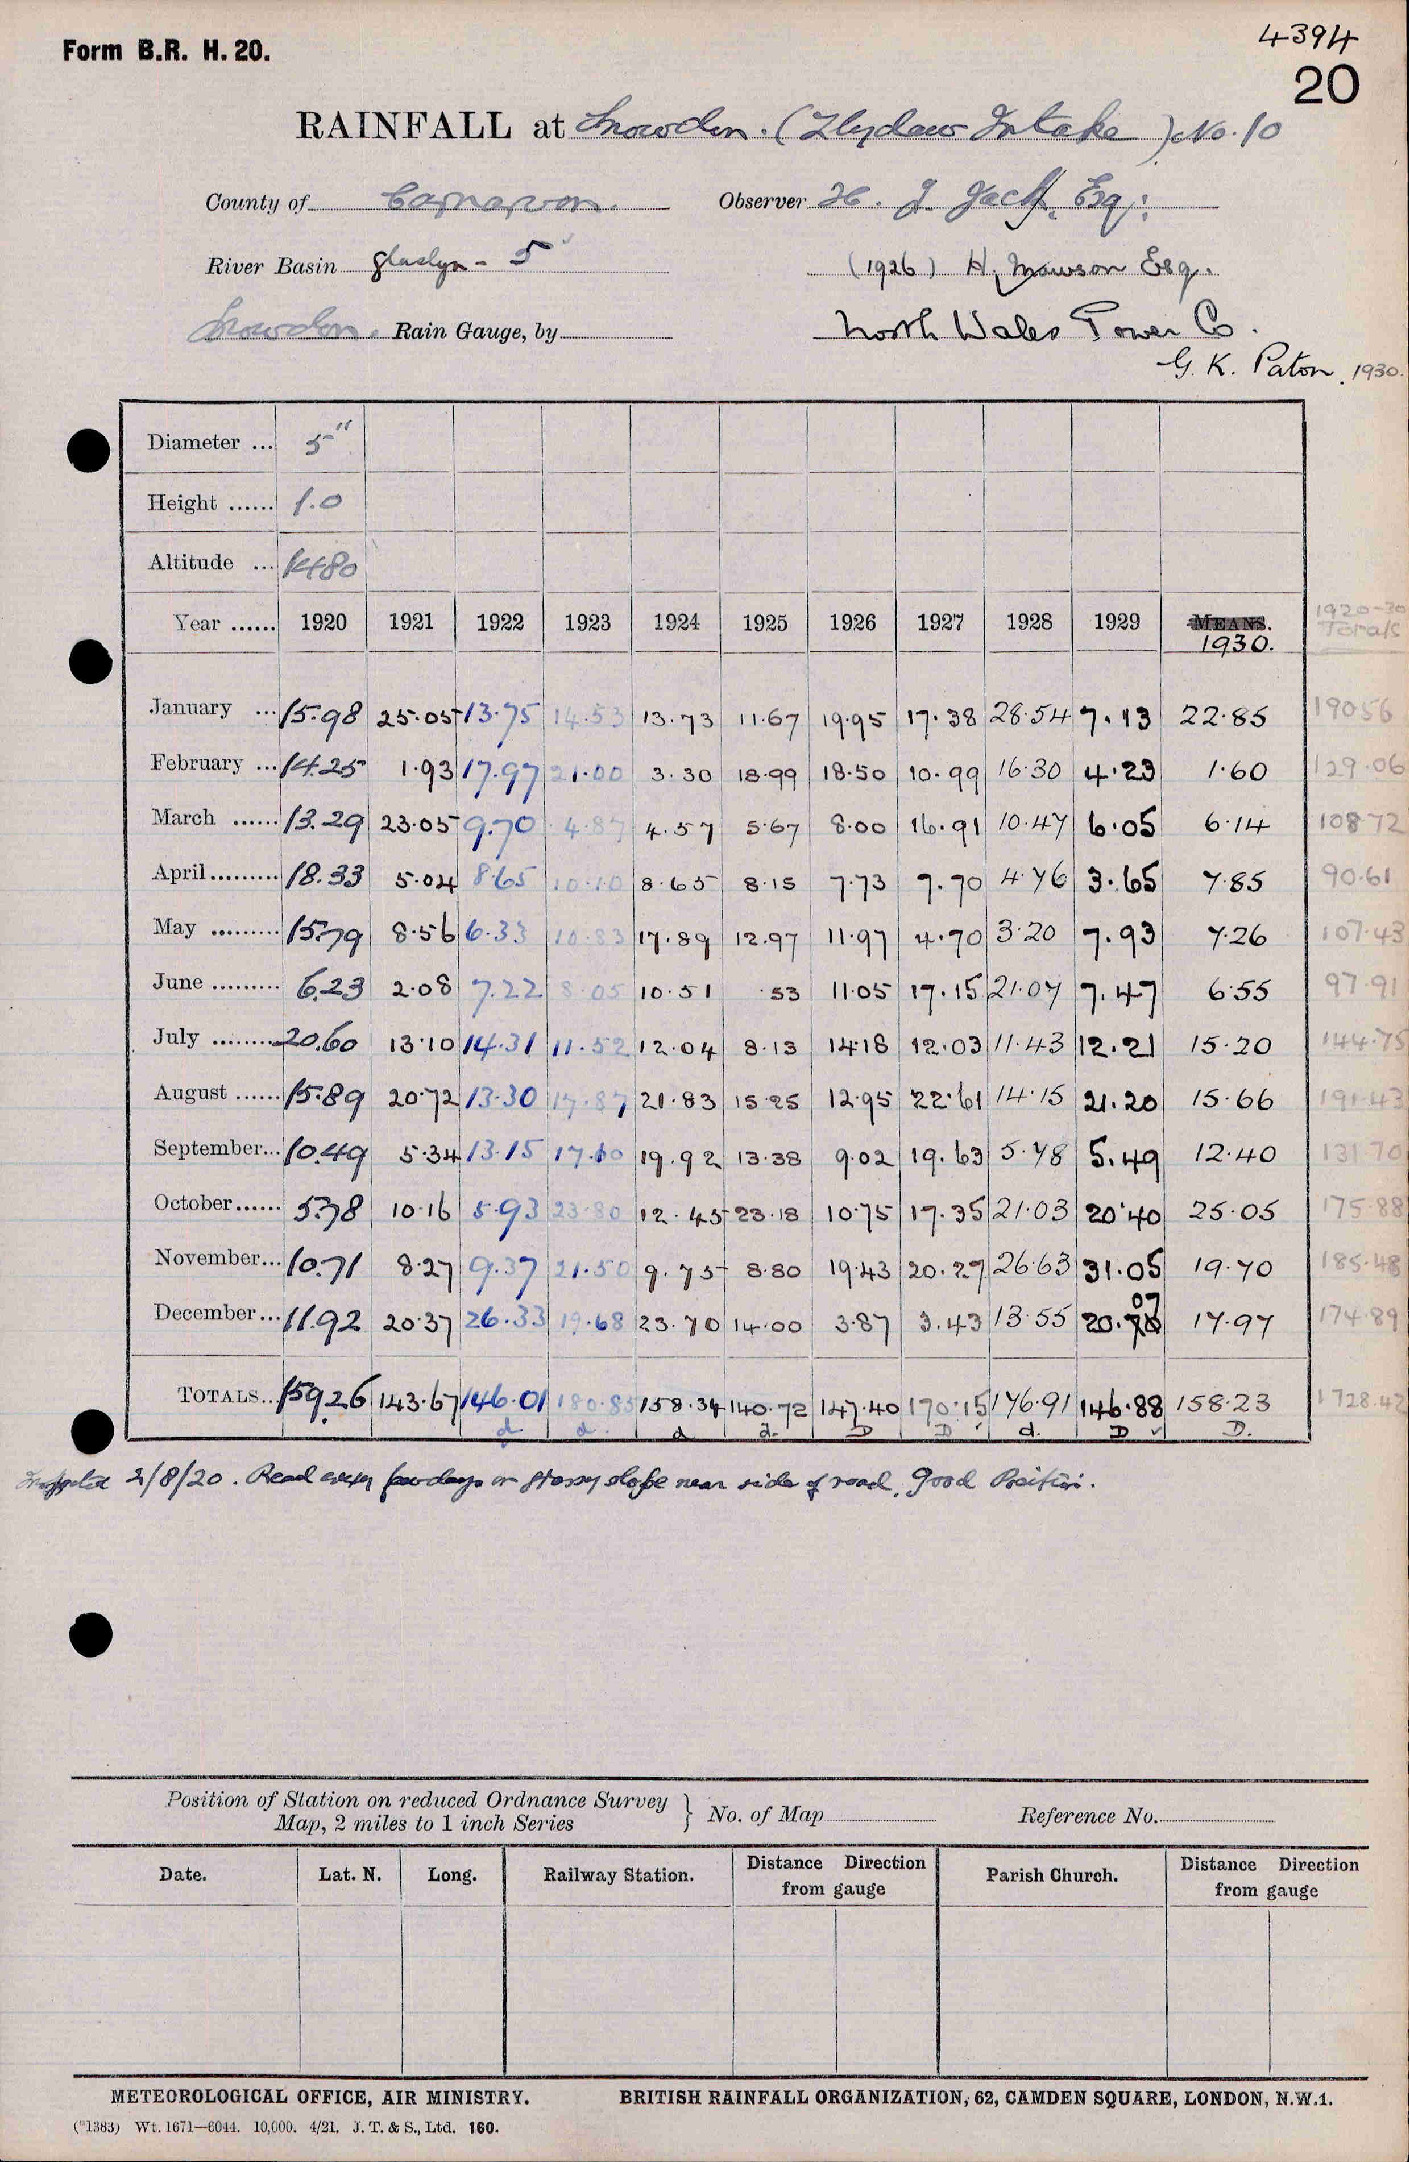 Form B.R. H. 20.
4394
20
RAINFALL at Snowdon. (Llydaw Intake) No. 10
County of Carnarvon. Observer H. J. Jack, Esq:
River Basin Glaslyn - 5 (1926) H. Mawson Esq.
Snowdon. Rain Gauge, by North Wales Power Co.
G. K. Paton. 1930.
Diameter ... 5"
Height ...... 1.0
Altitude ... 1480
Year ...... 1920 1921 1922 1923 1924 1925 1926 1927 1928 1929 MEANS. 1930. 1920-30 Totals
January ... 15.98 25.05 13.75 14.53 13.73 11.67 19.95 17.38 28.54 7.13 22.85 190.56
February ... 14.25 1.93 17.97 21.00 3.30 18.99 18.50 10.99 16.30 4.23 1.60 129.06
March ...... 13.29 23.05 9.70 4.87 4.57 5.67 8.00 16.91 10.47 6.05 6.14 108.72
April ......... 18.33 5.04 8.65 10.10 8.65 8.15 7.73 7.70 4.76 3.65 7.85 90.61
May ......... 15.79 8.56 6.33 10.83 17.89 12.97 11.97 4.70 3.20 7.93 7.26 107.43
June ......... 6.23 2.08 7.22 8.05 10.51 .53 11.05 17.15 21.07 7.47 6.55 97.91
July ......... 20.60 13.10 14.31 11.52 12.04 8.13 14.18 12.03 11.43 12.21 15.20 144.75
August ...... 15.89 20.72 13.30 17.87 21.83 15.25 12.95 22.61 14.15 21.20 15.66 191.43
September... 10.49 5.34 13.15 17.10 19.92 13.38 9.02 19.63 5.78 5.49 12.40 131.70
October...... 5.78 10.16 5.93 23.80 12.45 23.18 10.75 17.35 21.03 20.40 25.05 175.88
November... 10.71 8.27 9.37 21.50 9.75 8.80 19.43 20.27 26.63 31.05 19.70 185.48
December... 11.92 20.37 26.33 19.68 23.70 14.00 3.87 3.43 13.55 20.07 17.97 174.89
TOTALS... 159.26 143.67 146.01 180.85 158.34 140.72 147.40 170.15 176.91 146.88 158.23 1728.42
d d. d d. D D d. D D.
Inspected 2/8/20. Read every few days on grassy slope near side of road. Good Position.
Position of Station on reduced Ordnance Survey Map, 2 miles to 1 inch Series } No. of Map Reference No.
Date. Lat. N. Long. Railway Station. Distance Direction from gauge Parish Church. Distance Direction from gauge
METEOROLOGICAL OFFICE, AIR MINISTRY. BRITISH RAINFALL ORGANIZATION, 62, CAMDEN SQUARE, LONDON, N.W.1.
(*1383) Wt. 1671—6044. 10,000. 4/21. J. T. & S., Ltd. 160.